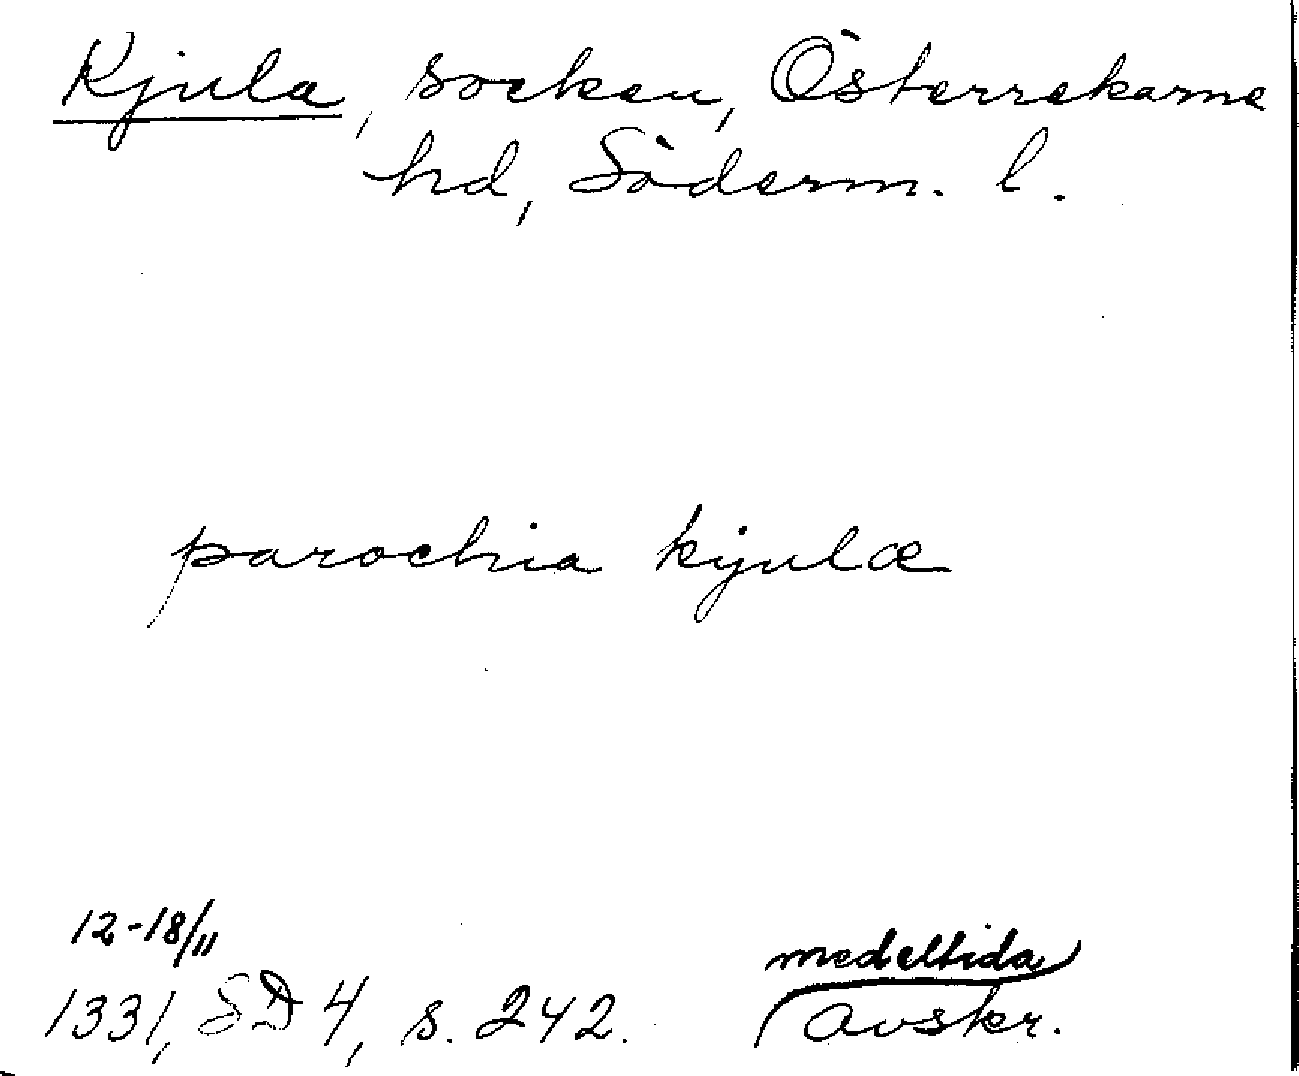 Kjula, socken, Österrekarne
hd, Söderm. l.
parochia kijulæ
12-18/11
1331, SD 4, s. 242.
medeltida
avskr.